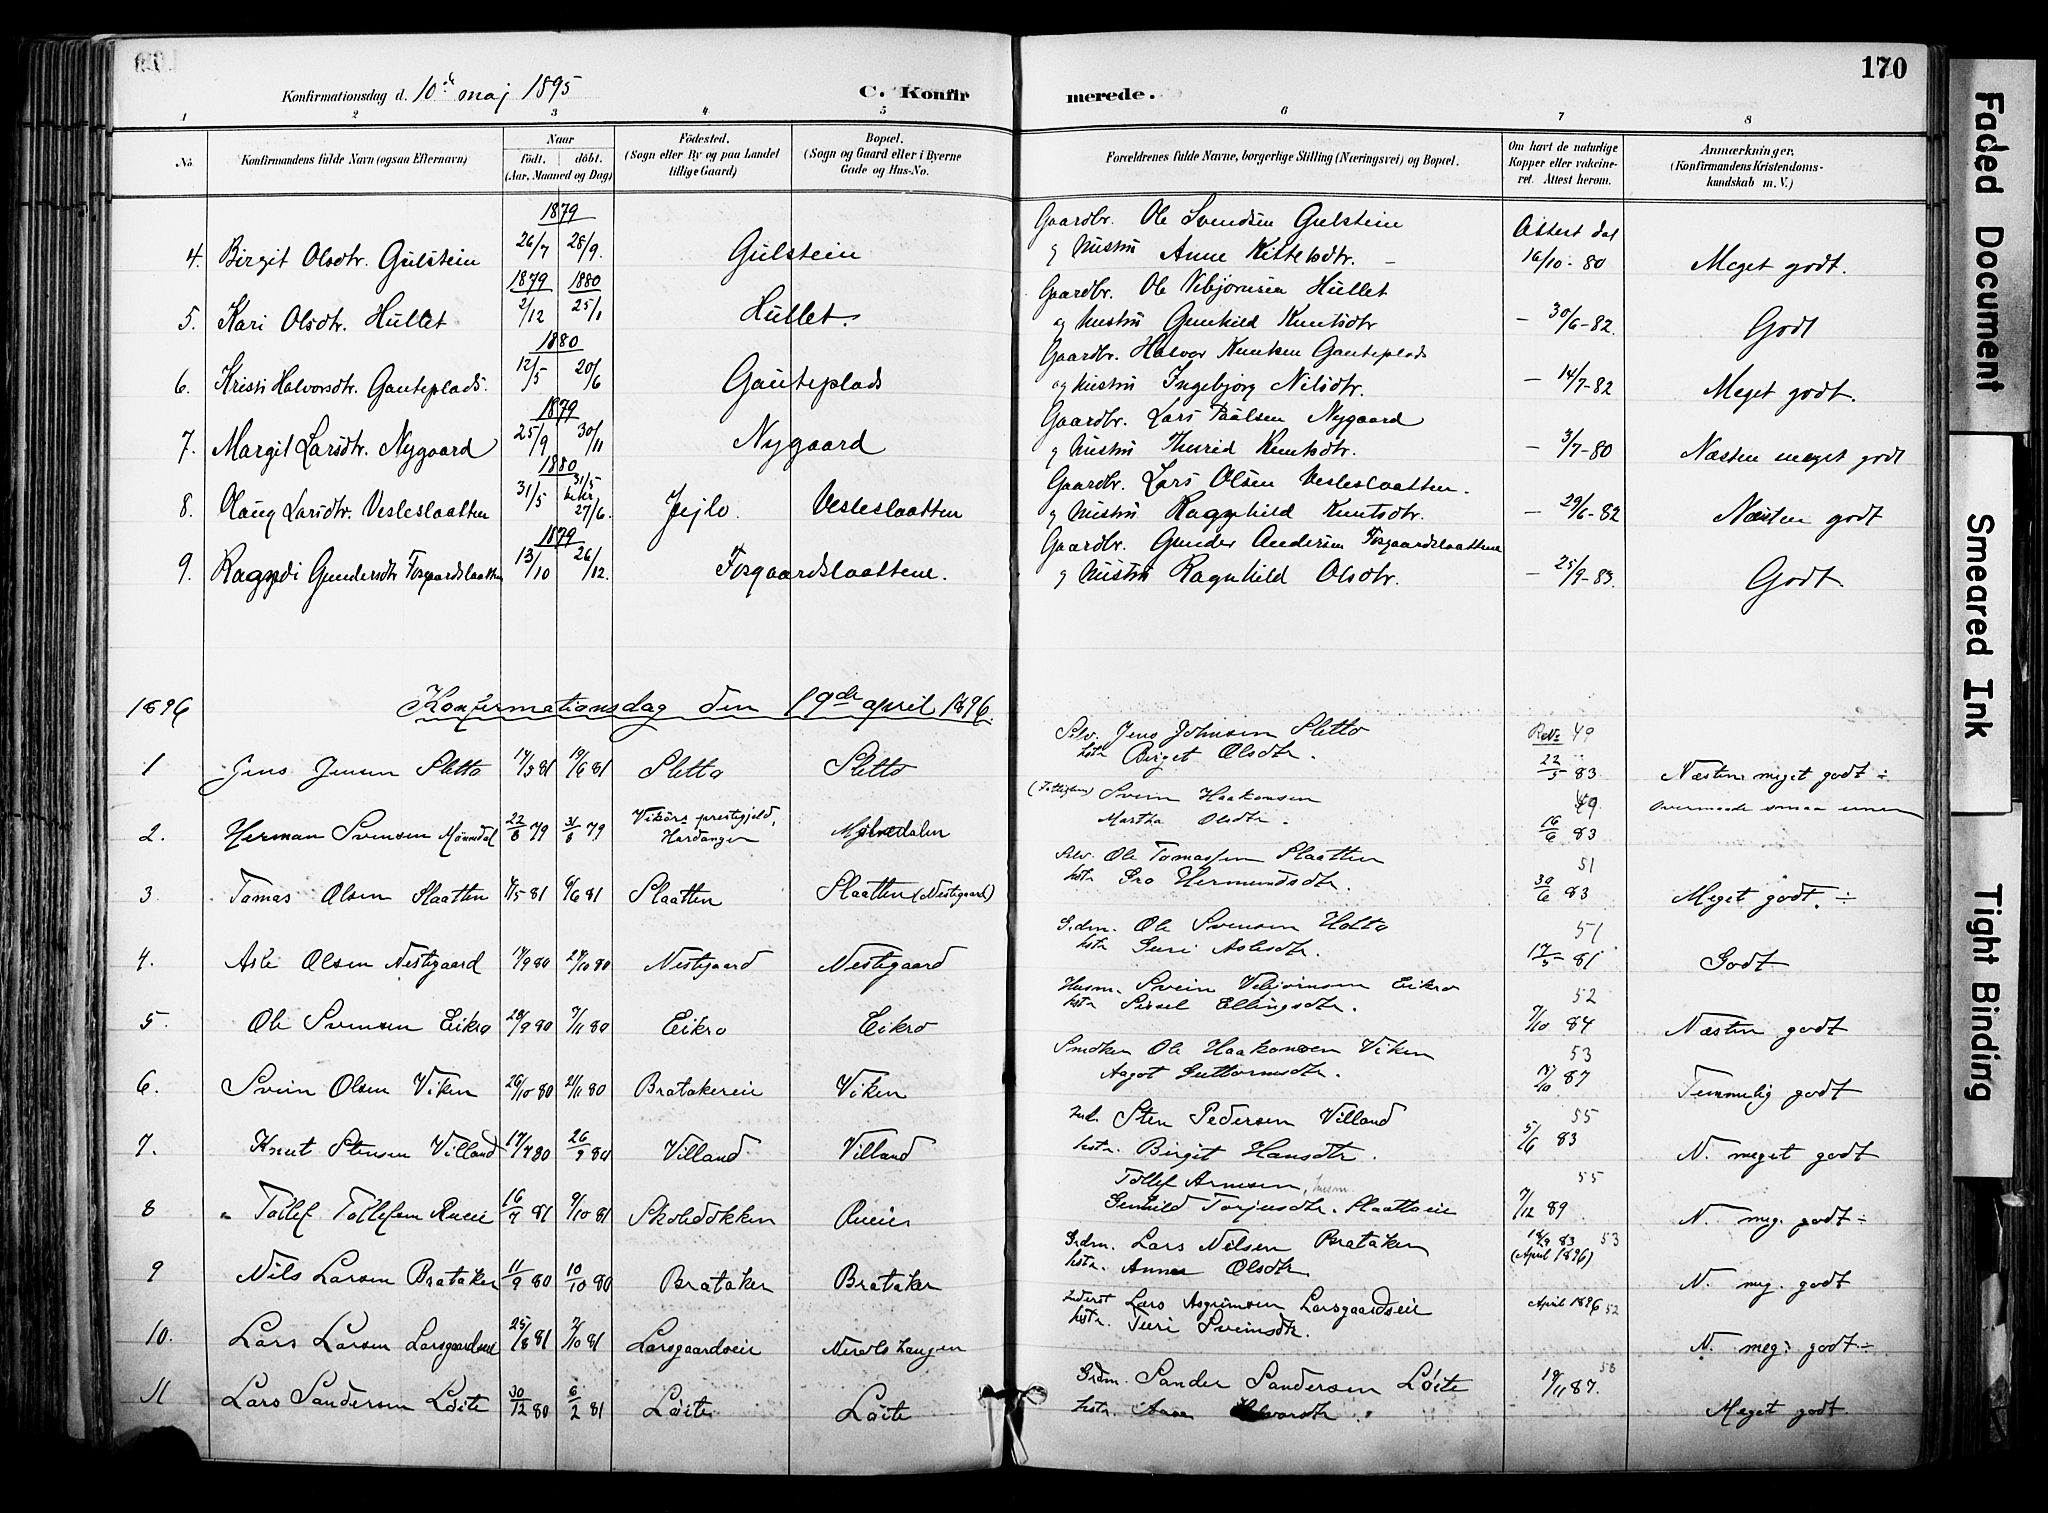 170
Konfirmationsdag d. 10de maj 1895
C. Konfirmerede.
1 2 3 4 5 6 7 8
No.
Konfirmandens fulde Navn (ogsaa Efternavn)
Naar
født. døbt.
(Aar, Maaned og Dag)
Fødested.
(Sogn eller By og paa Landet
tillige Gaard)
Bopæl.
(Sogn og Gaard eller i Byerne
Gade og Hus-No.
Forældrenes fulde Navne, borgerlige Stilling (Næringsvei) og Bopæl.
Om havt de naturlige
Kopper eller vakcine-
ret. Attest herom.
Anmærkninger.
(Konfirmandens Kristendoms-
kundskab m. V.)
1879 Gaardbr. Ole Svendsen Gulstein Attest dat
4. Birgit Olsdtr. Gulstein 26/7 28/9. Gulstein og Hustru Anne Kittelsdtr. – 16/10-80 Meget godt.
1879 1880 Gaardbr. Ole Vebjørnsen Hullet
5. Kari Olsdtr. Hullet 2/12 25/1 Hullet. og Hustru Gunhild Knutsdtr – 30/6-82. Godt
1880 Gaardbr. Halvor Knutsen Gauteplads
6. Kristi Halvorsdtr. Gauteplads. 12/5 20/6 Gauteplads og Hustru Ingebjørg Nilsdtr. – 14/7-82 Meget godt.
1879 Gaardbr. Lars Paalsen Nygaard
7. Margit Larsdtr. Nygaard 25/9 30/11 Nygaard og Hustru Thurid Knutsdtr. – 3/7-80 Næsten meget godt
1880 31/5 Gaardbr. Lars Olsen Vesleslaatten.
8. Olaug Larsdtr. Vesleslaatten 31/5 27/6. Jejlo. Vesleslaatten og Hustru Ragnhild Knutsdtr. – 29/6-82 Næsten godt
1879 Gaardbr. Gunder Andersen Fosgaardslaattene
9. Ragndi Gundersdtr Fosgaardslaatten 13/10 26/12. Fosgaardslaattene. og Hustru Ragnhild Olsdtr. – 25/9-83. Godt
1896 Konfirmationsdag den 19de april 1896.
Selv. Jens Johnsen Sletto 49
hstr Birget Olsdtr.
1 Jens Jensen Sletto 17/3 81 19/6 81 Sletto Sletto 22/5 83 Næsten meget godt ÷
Svein Haakonsen 49. overmaade smaa evner
2. Herman Svensen Mønnedal 22/8 79 31/8 79 Vikørs prestegjeld, Hardanger Martha Olsdtr. 16/6 83
Selv. Ole Tomassen Slaatten 51
hstr Gro Hermundsdtr.
3 Tomas Olsen Slaatten 7/5 81 6/6 81 Slaatten Slaatten (Nestegaard) 30/6 83 Meget godt. ÷
Grdm. Ole Svensen Holto 51
hstr Guri Aslesdtr.
4. Asle Olsen Nestegaard 17/9 80 24/10 80 Nestegaard Nestegaard 17/5-81 Godt
Husm. Svein Vebjørnsen Eikro 52
hstr Sissel Ellingsdtr.
5. Ole Svensen Eikro 28/9 80 7/11 80 Eikro Eikro 7/10 84 Næsten godt
Snedker Ole Haakonsen Viken 53
Aagot Guttormsdtr.
6. Svein Olsen Viken 26/10 80 21/11 80 Bratakereie Viken 7/10 87 Temmelig godt
Sten Pedersen Villand 55
7. Knut Stensen Villand 17/7 80 26/9 80 Villand Villand hstr. Birgit Hansdtr. 5/6 83 N. meget godt
Tollef Arnesen, husm. 55
8 Tollef Tollefsen Rueie 16/7 81 9/10 81 Skoledokken Rueie Gunhild Torjusdtr. Slaatteeie 7/12 89 N. meg. godt ÷
Grdm. Lars Nilsen Brataker 18/9 83 53
(April 1896)
9 Nils Larsen Brataker 11/9 80 10/10 80 Brataker Brataker hstr. Anne Olsdtr. N. meg. godt
Lars Asgrimsen Larsgaardseie April 1896 52
hstr. Turi Sveinsdtr.
10. Lars Larsen Larsgaardseie 25/8 81 2/10 81 Larsgaardseie N. meg. godt ÷
Grdm. Sander Sandersen Løite 53
11 Lars Sandersen Løite 30/12 80 6/2 81 Løite Løite hstr. 19/11 87. Meget godt.
Faded Document
Smeared Ink
Tight Binding